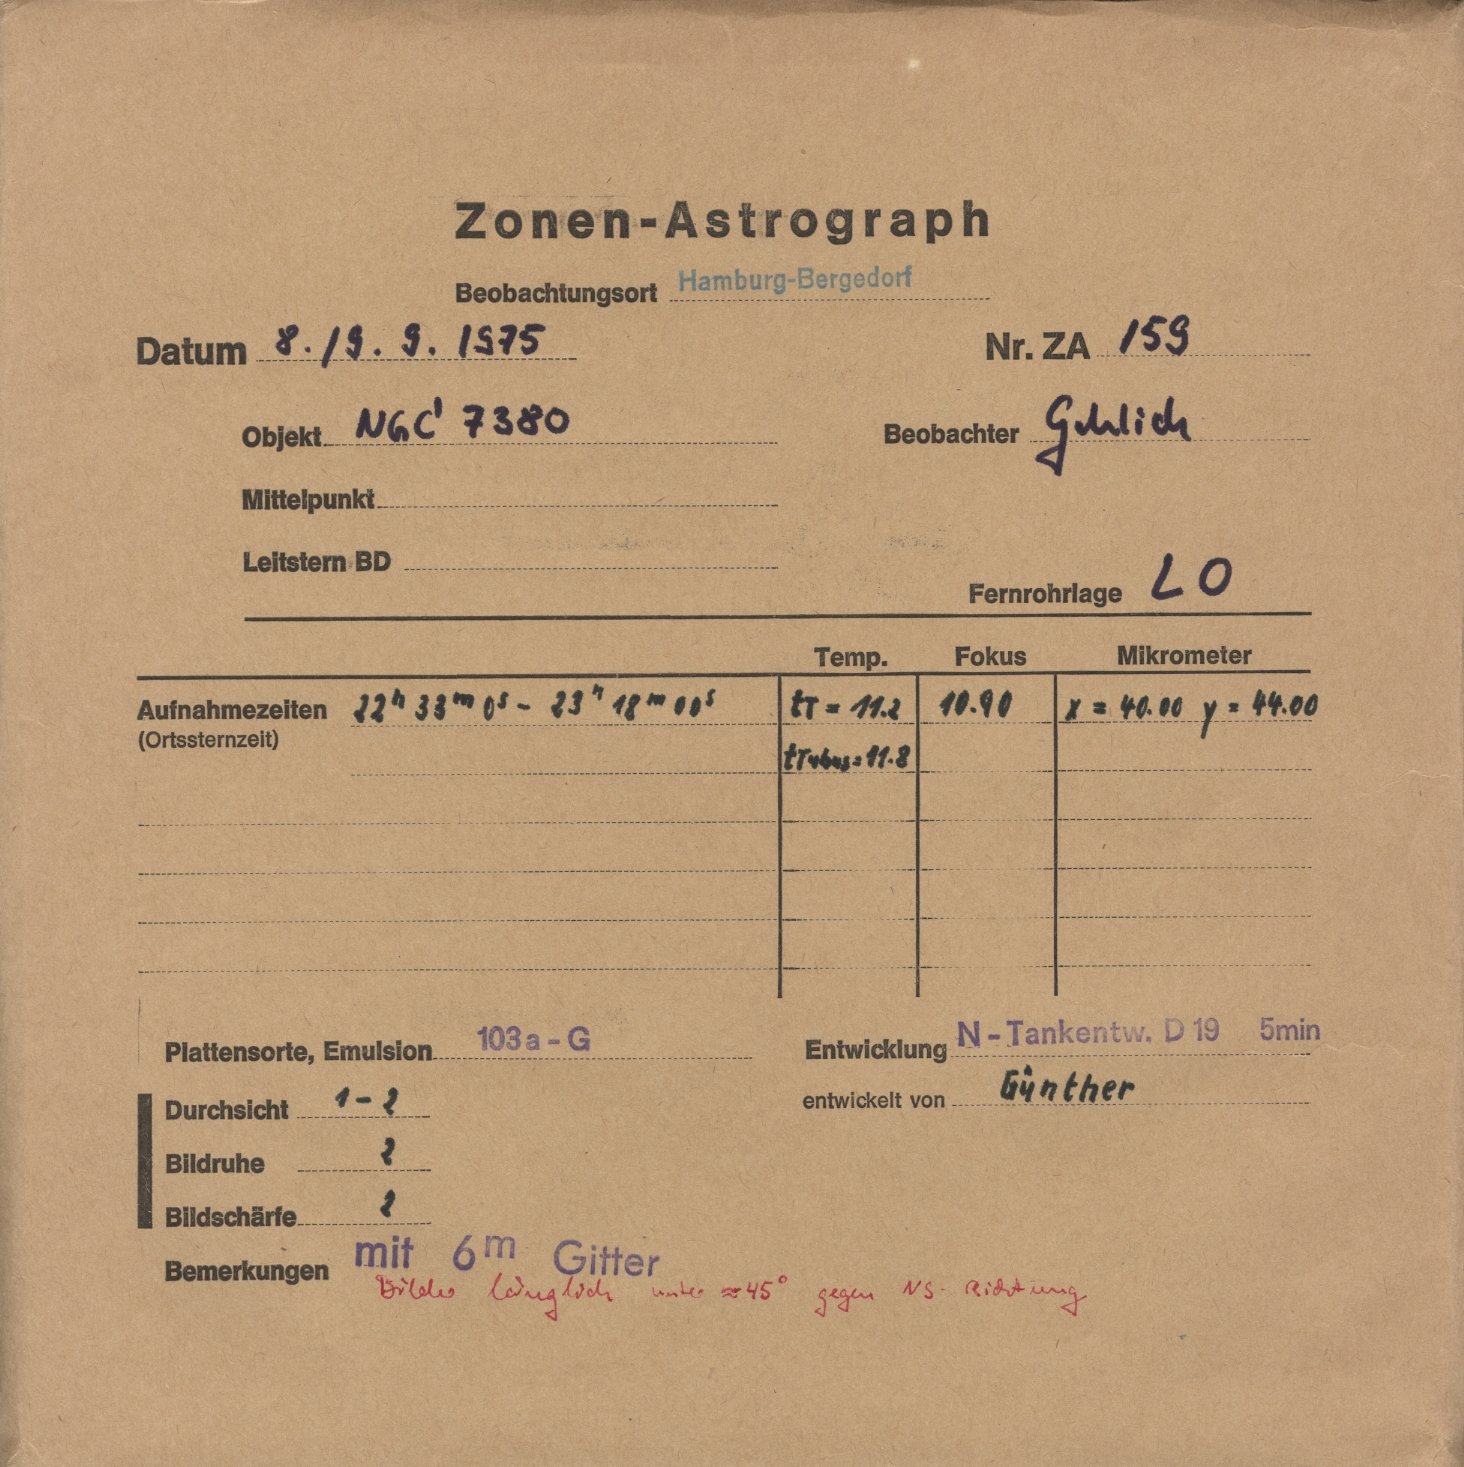 Zonen-Astrograph
Beobachtungsort Hamburg-Bergedorf
Datum 8./9. 9. 1975 Nr. ZA 159
Objekt NGC 7380 Beobachter Gehlich
Mittelpunkt
Leitstern BD
Fernrohrlage LO
Temp. Fokus Mikrometer
Aufnahmezeiten 22h 33m 0s - 23h 18m 00s tT = 11.2 10.90 x = 40.00 y = 44.00
(Ortssternzeit)
tTubus = 11.8
Plattensorte, Emulsion 103a-G Entwicklung N-Tankentw. D 19 5min
entwickelt von Günther
Durchsicht 1-2
Bildruhe 2
Bildschärfe 2
Bemerkungen mit 6m Gitter
Bilder länglich unter ≈45° gegen NS-Richtung